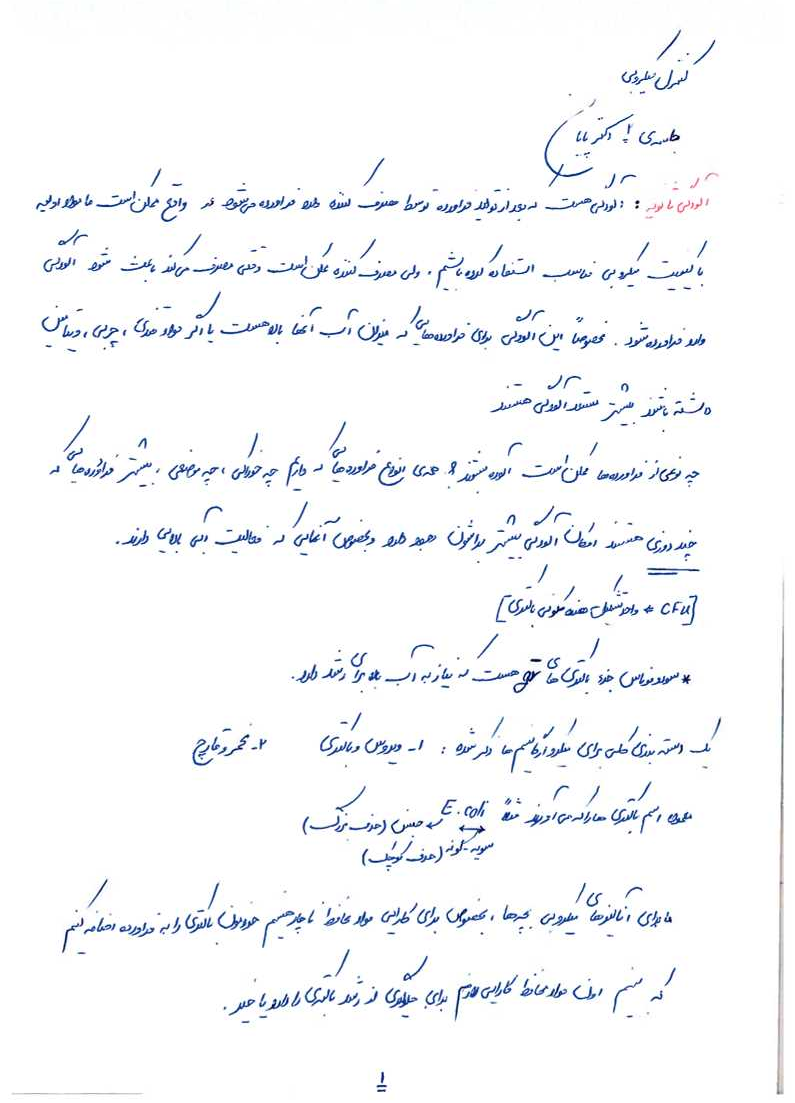 کنترل میکروبی
جلسه‌ی ۲ دکتر بابایان
آلودگی ثانویه : آلودگی هست که بعد از تولید فراورده توسط مصرف کننده وارد فراورده می‌شود در واقع ممکن است ما مواد اولیه
با کیفیت میکروبی مناسب استفاده کرده باشیم ، ولی مصرف کننده ممکن است وقتی مصرف می‌کند باعث شود آلودگی
وارد فراورده شود . مخصوصاً این آلودگی برای فراورده‌هایی که میزان آب آنها بالا هست یا اگر مواد قندی ، چربی ، ویتامین
داشته باشند بیشتر مستعد آلودگی هستند
چه نوعی از فراورده‌ها ممکن است آلوده بشوند ؟ همه‌ی انواع فراورده‌هایی که داریم چه خوراکی ، چه موضعی ، بیشتر فراورده‌هایی که
چند دوزی هستند امکان آلودگی بیشتر براشون وجود دارد و بخصوص آنهایی که فعالیت آبی بالایی دارند .
[CFU ← واحد تشکیل دهنده کلونی باکتری]
* سودوموناس جزء باکتری های هست که نیاز به آب بالا برای رشد دارد .
یک دسته بندی کلی برای میکروارگانیسم ها ذکر شده : ۱- ویروس و باکتری ۲- مخمر و قارچ
اسم باکتری ها را که می‌آورند مثلاً E.coli ← جنس (حرف بزرگ)
سویه-گونه (حرف کوچک)
ما برای آنالیزهای میکروبی بچه‌ها ، بخصوص برای کارایی مواد محافظ ناچار هستیم خودمون باکتری را به فراورده اضافه کنیم
که ببینیم اون مواد محافظ کارایی لازم برای جلوگیری از رشد باکتری را دارد یا خیر .
۱